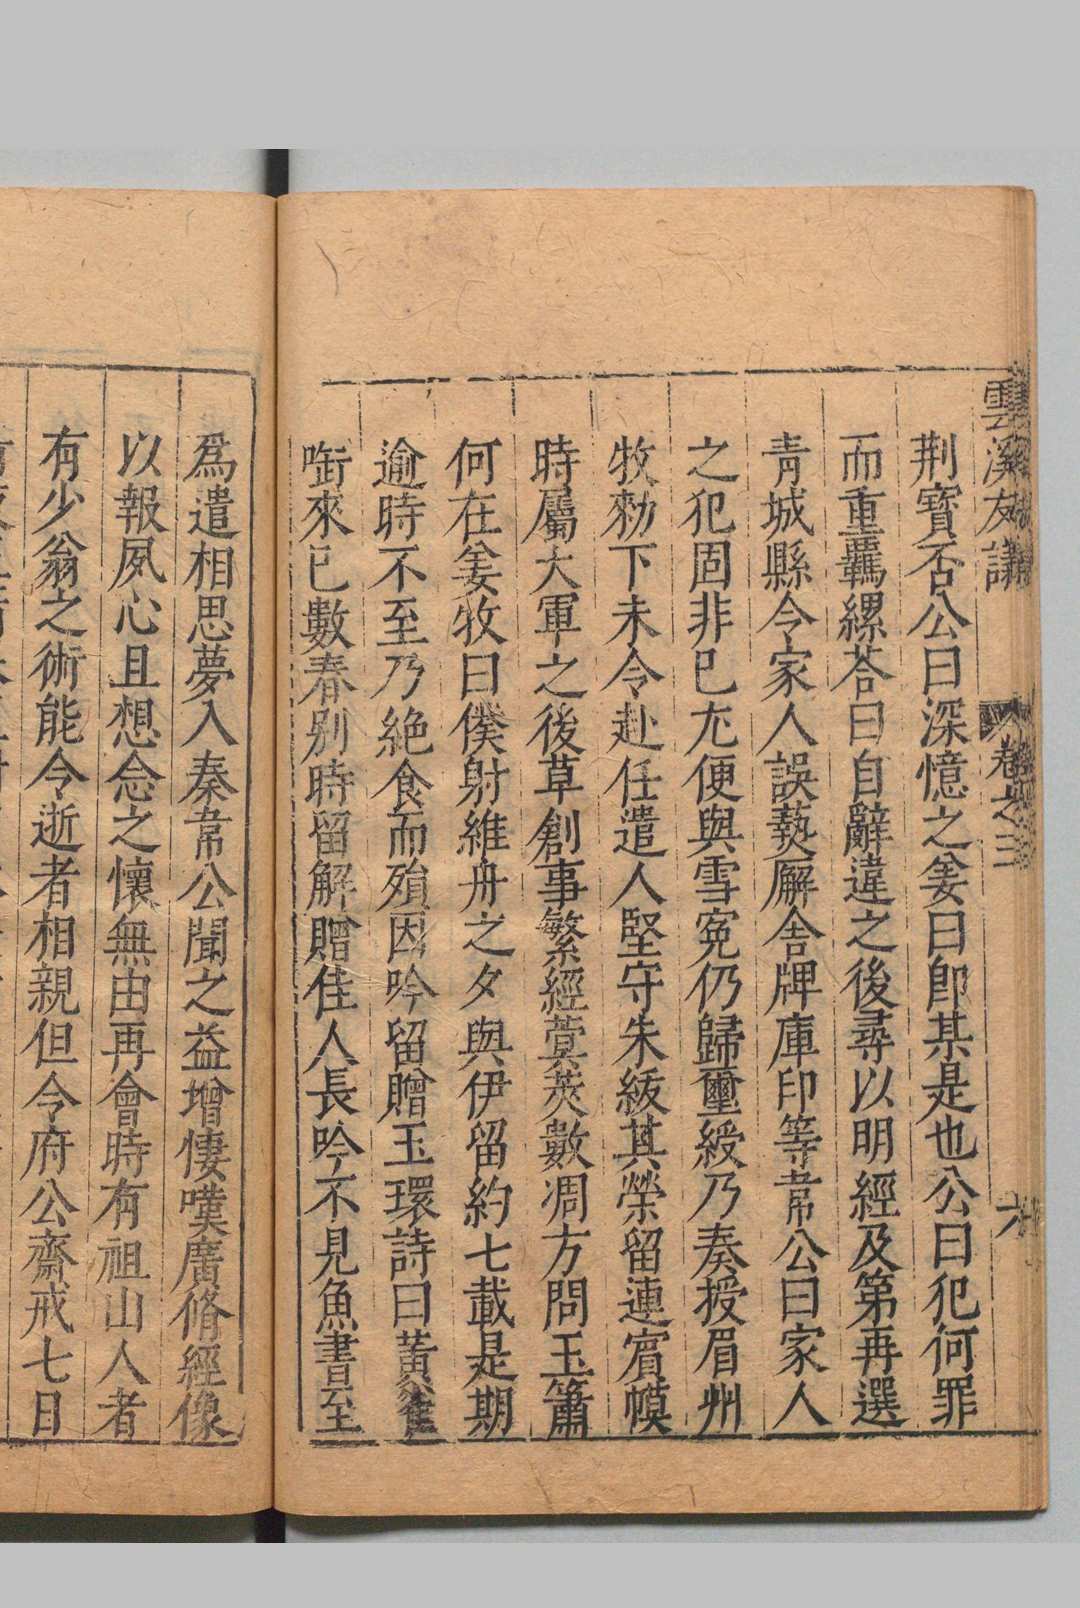 雲溪友議 卷之三 六
荆寳否公曰深憶之姜曰即某是也公曰犯何罪
而重羈縲荅曰自辭違之後尋以明經及第再選
青城縣令家人誤爇廨舍牌庫印等韋公曰家人
之犯固非已尤便與雪寃仍歸璽綬乃奏授眉州
牧勑下未令赴任遣人堅守朱紱其榮留連賓幙
時屬大軍之後草創事繁經蓂莢數凋方問玉簫
何在姜牧曰僕射維舟之夕與伊留約七載是期
逾時不至乃絶食而殞因吟留贈玉環詩曰黄雀
啣來已數春别時留解贈佳人長吟不見魚書至
爲遣相思夢入秦韋公聞之益增悽嘆廣脩經像
以報夙心且想念之懷無由再會時有祖山人者
有少翁之術能令逝者相親但令府公齋戒七日